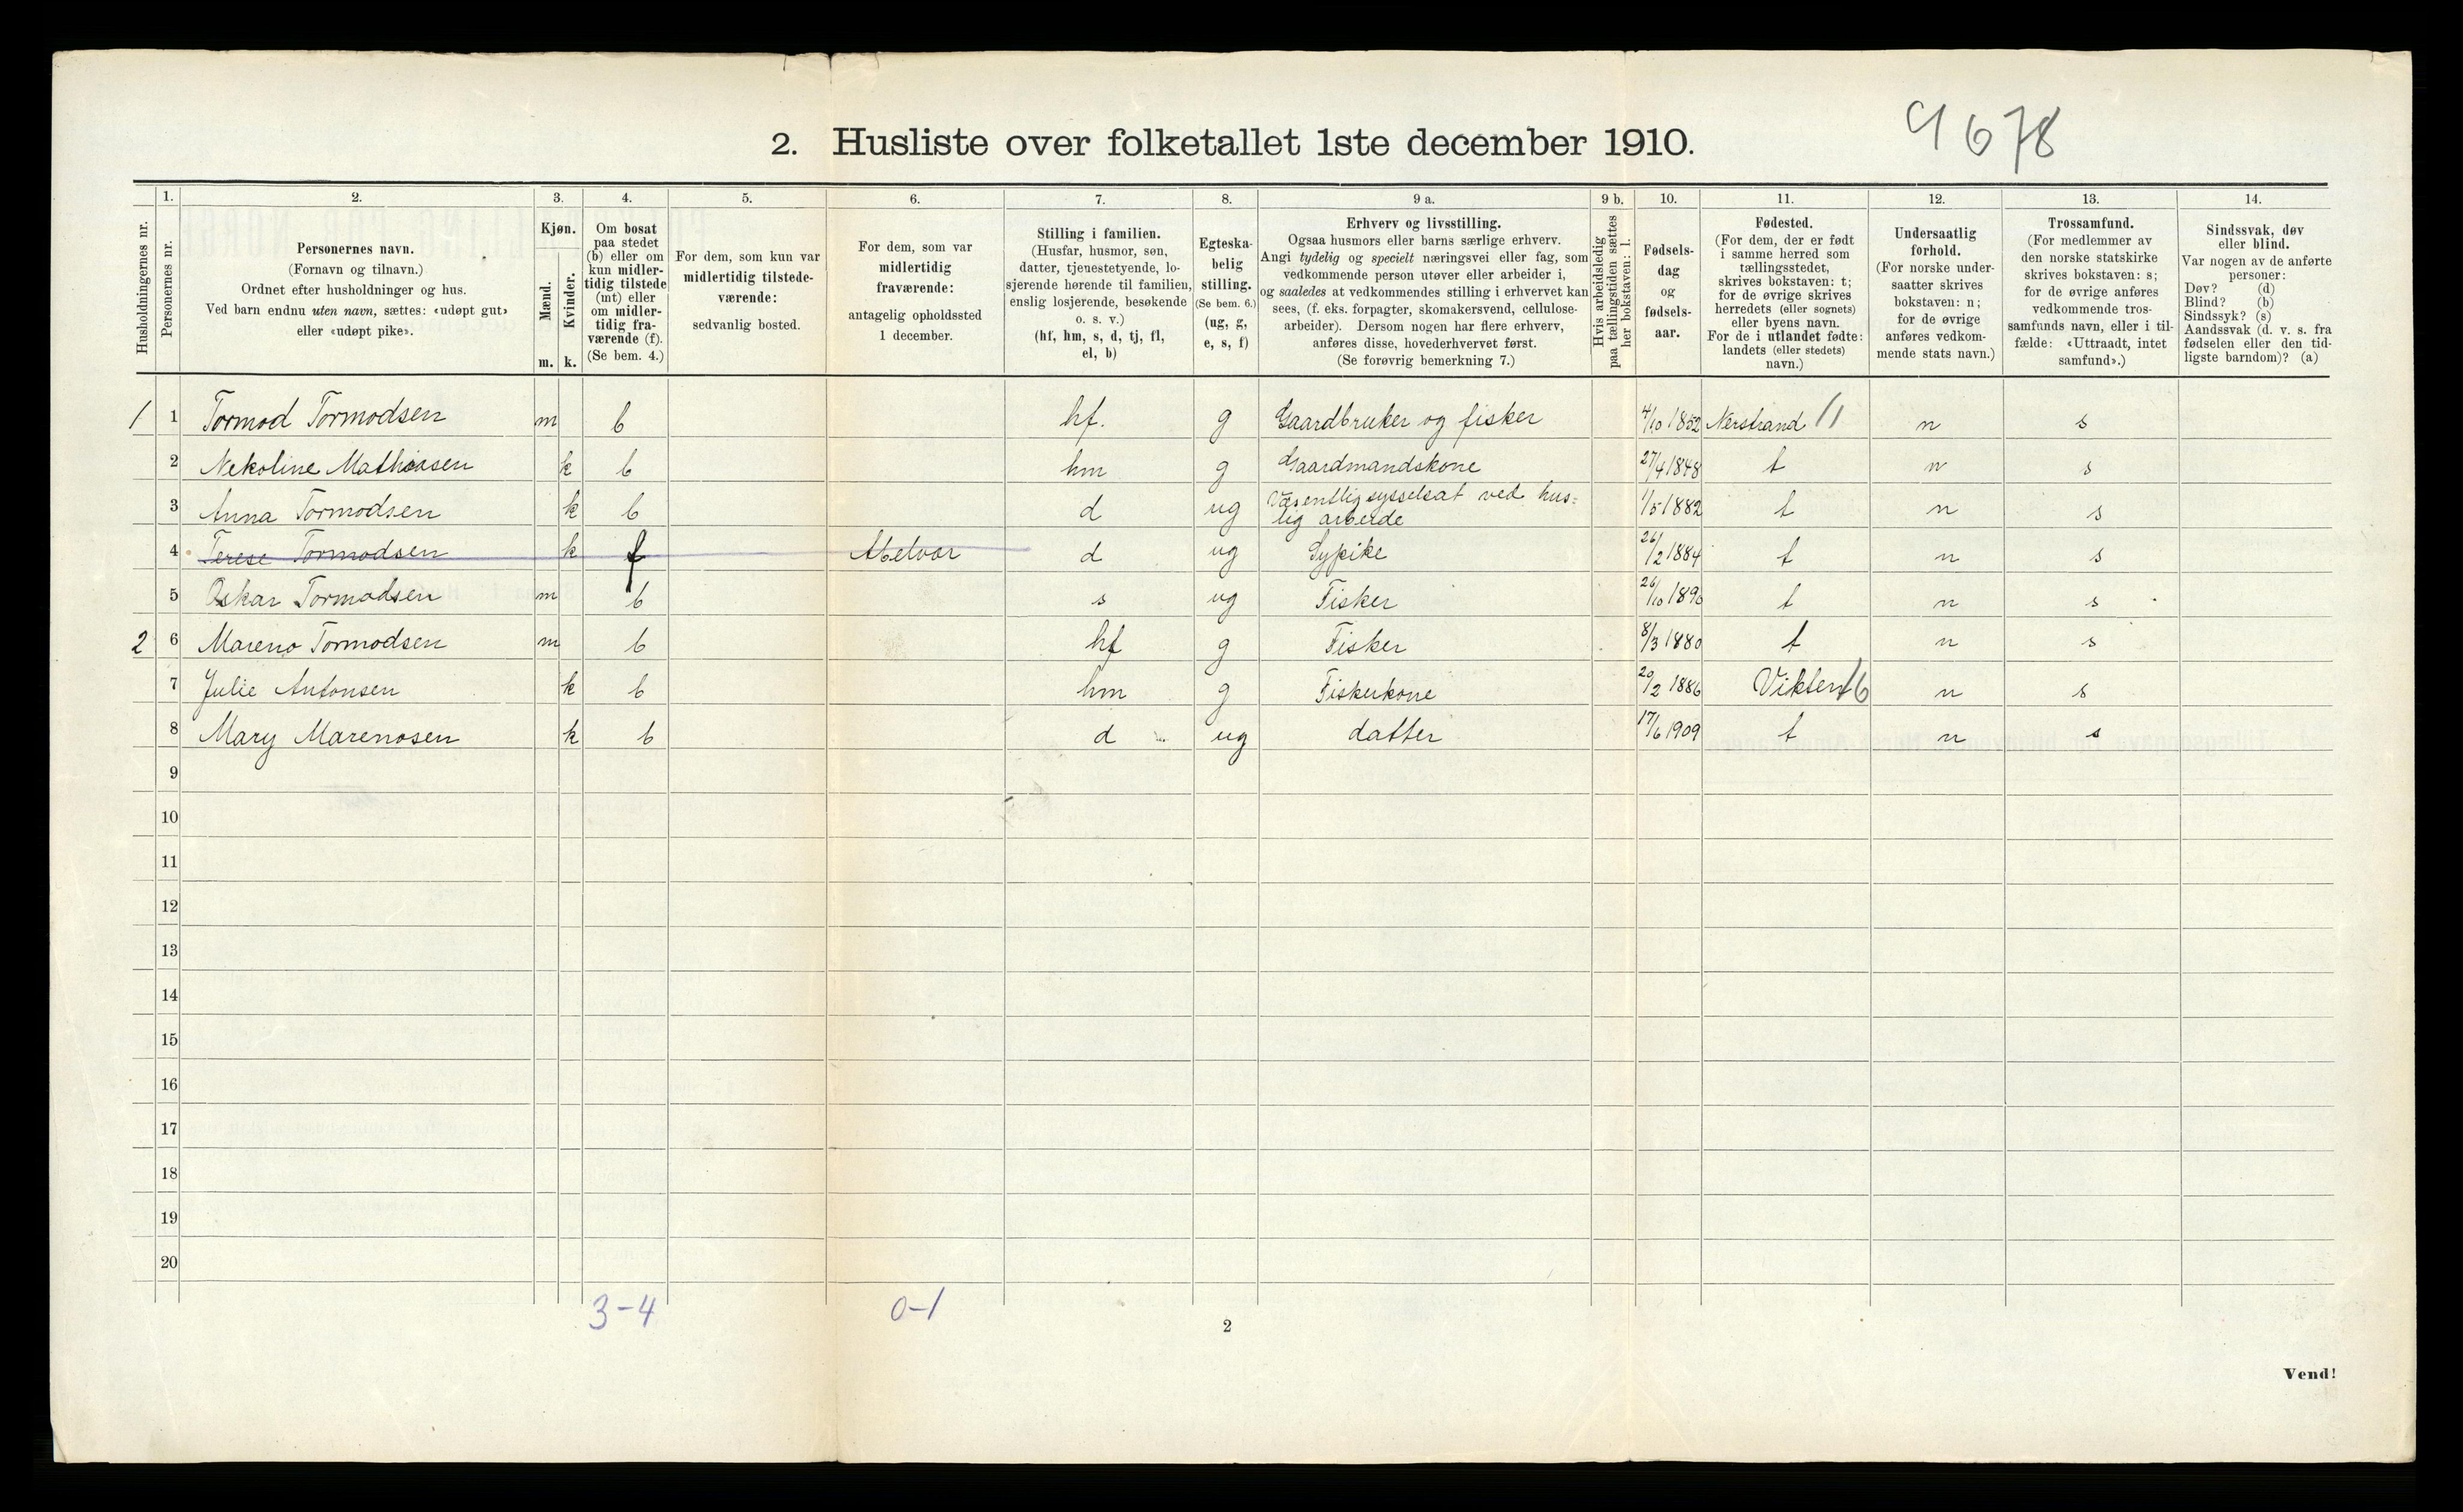 2. Husliste over folketallet 1ste december 1910.
9678
1. 2. 3. 4. 5. 6. 7. 8. 9 a. 9 b. 10. 11. 12. 13. 14.
Husholdningernes nr.
Personernes nr.
Personernes navn.
(Fornavn og tilnavn.)
Ordnet efter husholdninger og hus.
Ved barn endnu uten navn, sættes: «udøpt gut»
eller «udøpt pike».
Kjøn.
Mænd.
Kvinder.
m. k.
Om bosat
paa stedet
(b) eller om
kun midler-
tidig tilstede
(mt) eller
om midler-
tidig fra-
værende (f).
(Se bem. 4.)
For dem, som kun var
midlertidig tilstede-
værende:
sedvanlig bosted.
For dem, som var
midlertidig
fraværende:
antagelig opholdssted
1 december.
Stilling i familien.
(Husfar, husmor, søn,
datter, tjenestetyende, lo-
sjerende hørende til familien,
enslig losjerende, besøkende
o. s. v.)
(hf, hm, s, d, tj, fl,
el, b)
Egteska-
belig
stilling.
(Se bem. 6.)
(ug, g,
e, s, f)
Erhverv og livsstilling.
Ogsaa husmors eller barns særlige erhverv.
Angi tydelig og specielt næringsvei eller fag, som
vedkommende person utøver eller arbeider i,
og saaledes at vedkommendes stilling i erhvervet kan
sees, (f. eks. forpagter, skomakersvend, cellulose-
arbeider). Dersom nogen har flere erhverv,
anføres disse, hovederhvervet først.
(Se forøvrig bemerkning 7.)
Hvis arbeidsledig
paa tællingstiden sættes
her bokstaven: l.
Fødsels-
dag
og
fødsels-
aar.
Fødested.
(For dem, der er født
i samme herred som
tællingsstedet,
skrives bokstaven: t;
for de øvrige skrives
herredets (eller sognets)
eller byens navn.
For de i utlandet fødte:
landets (eller stedets)
navn.)
Undersaatlig
forhold.
(For norske under-
saatter skrives
bokstaven: n;
for de øvrige
anføres vedkom-
mende stats navn.)
Trossamfund.
(For medlemmer av
den norske statskirke
skrives bokstaven: s;
for de øvrige anføres
vedkommende tros-
samfunds navn, eller i til-
fælde: «Uttraadt, intet
samfund».)
Sindssvak, døv
eller blind.
Var nogen av de anførte
personer:
Døv? (d)
Blind? (b)
Sindssyk? (s)
Aandssvak (d. v. s. fra
fødselen eller den tid-
ligste barndom)? (a)
1 1 Tormod Tormodsen m b hf. g Gaardbruker og fisker 4/10 1852 Nerstrand 11 n s
2 Nekoline Mathiasen k b hm g Gaardmandskone 27/4 1848 t n s
3 Anna Tormodsen k b d ug Væsentlig sysselsat ved hus=
lig arbeide 1/5 1882 t n s
4 Terese Tormodsen k f Abelvær d ug Sypike 26/2 1884 t n s
5 Oskar Tormodsen m b s ug Fisker 26/10 1890 t n s
2 6 Mareno Tormodsen m b hf g Fisker 8/3 1880 t n s
7 Julie Antonsen k b hm g Fiskerkone 20/2 1886 Vikten 16 n s
8 Mary Marenosen k b d ug datter 17/6 1909 t n s
9
10
11
12
13
14
15
16
17
18
19
20
3-4 0-1
2
Vend!